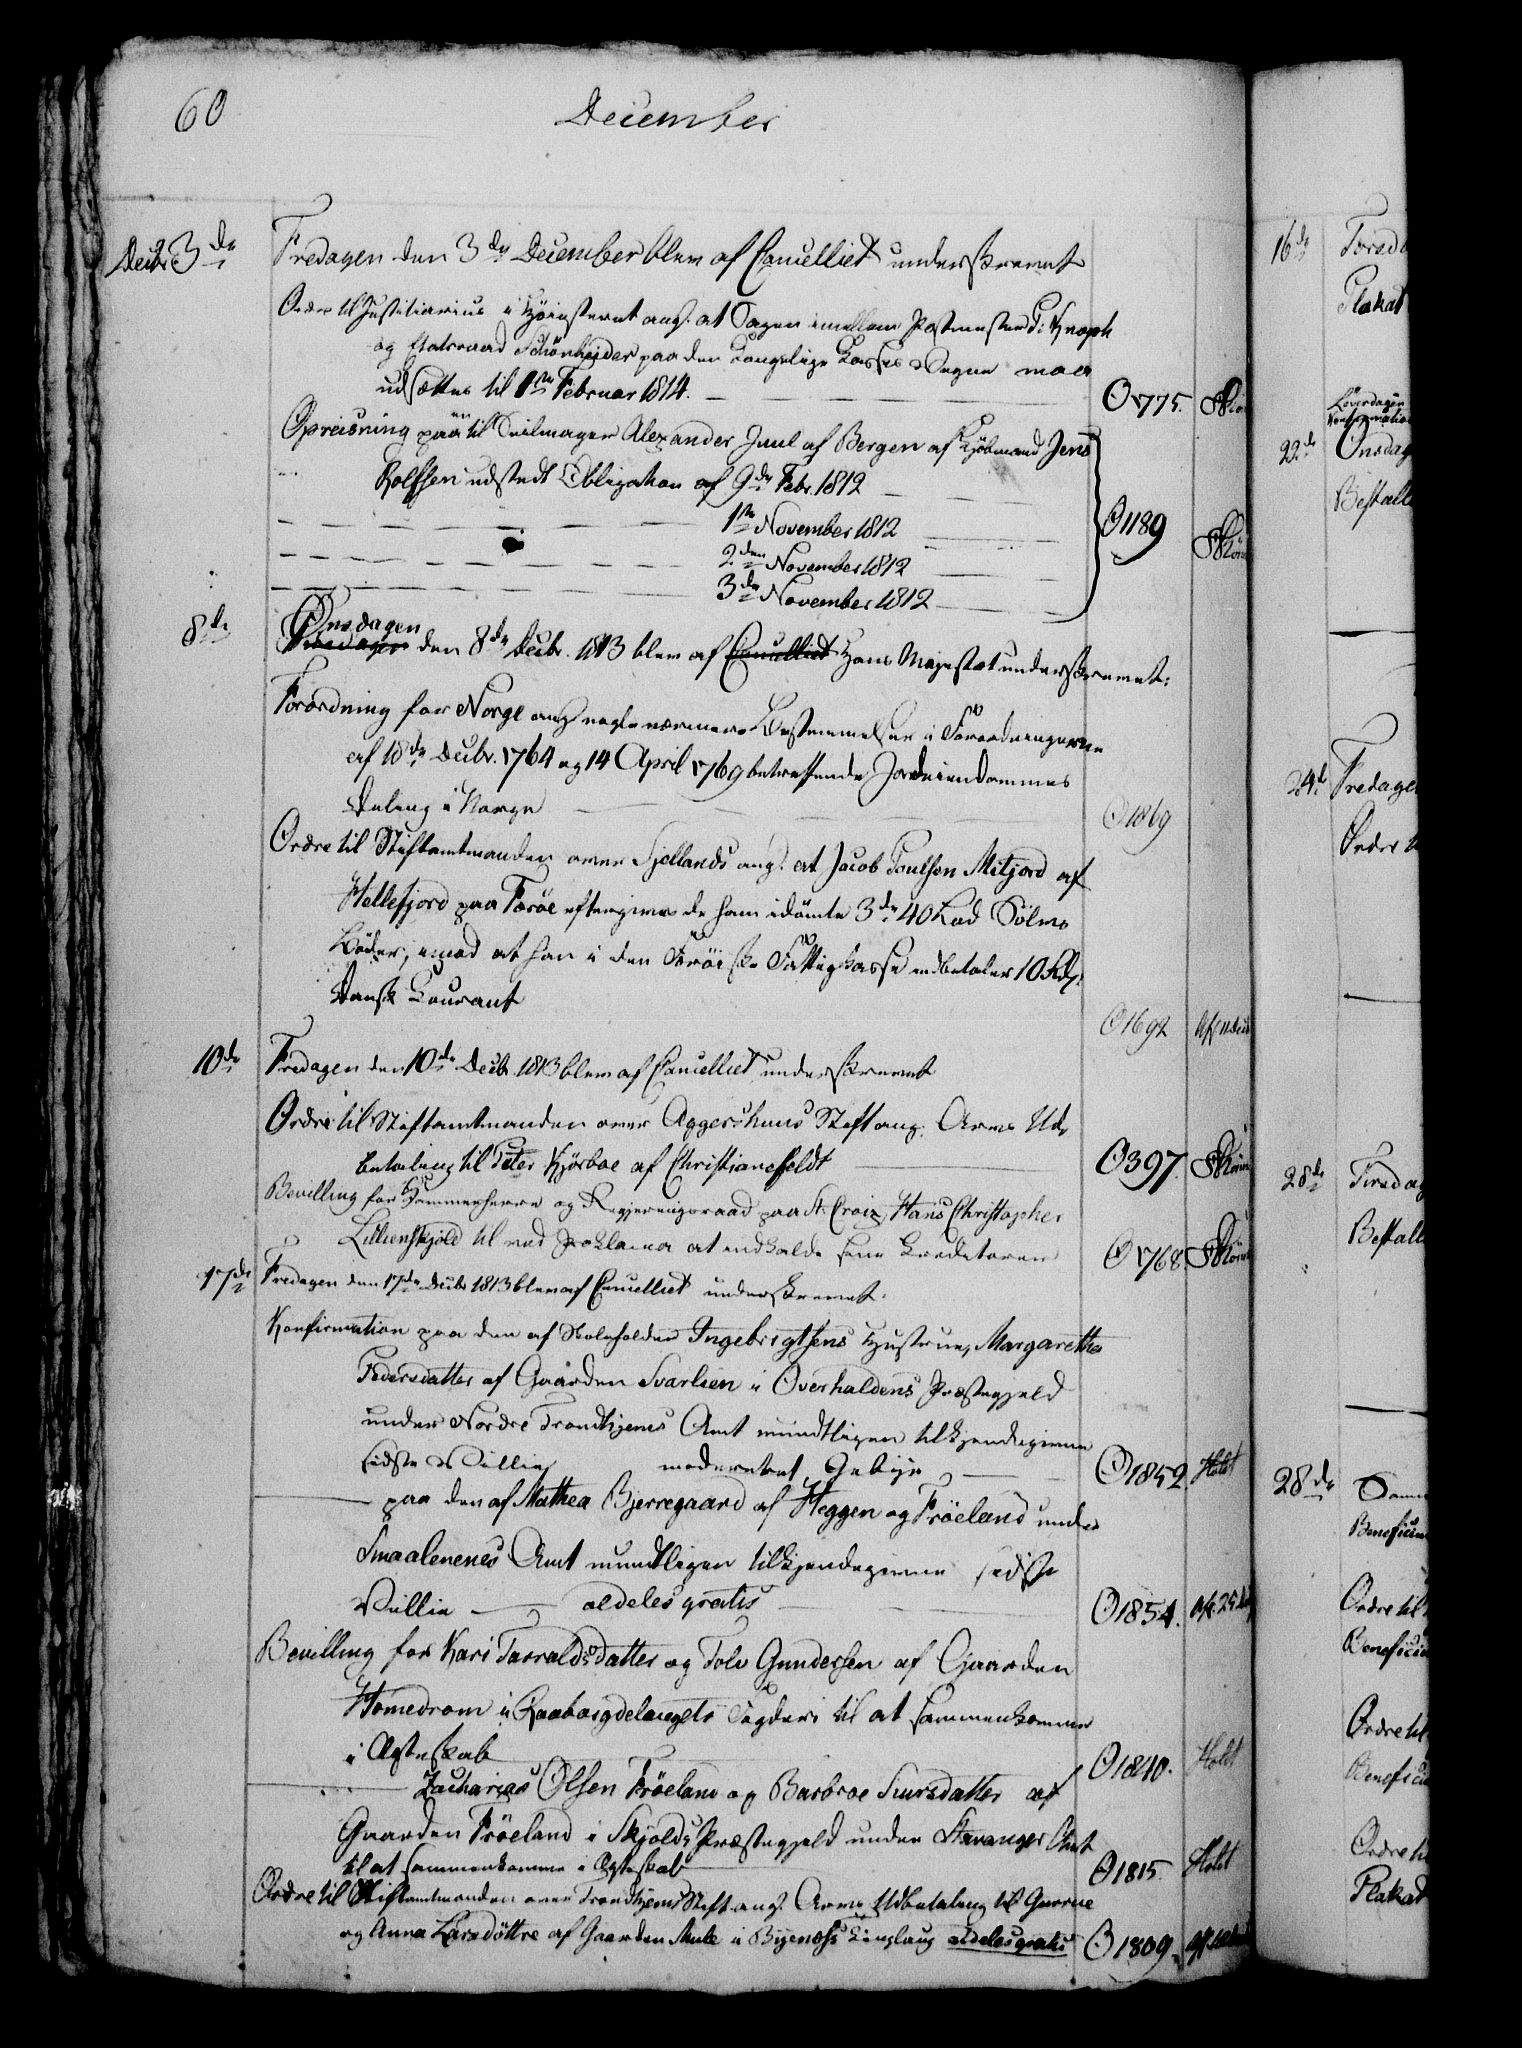 60
December
Decbr 3de
Fredagen den 3de December blev af Cancelliet underskrevet
Ordre til Justitiarius i Høiesteret angl. at Sagen imellem Postmester P: Knoph
og Etatsraad Schönheyder paa den Kongelige Kasses Vegne maa
udsættes til 1ste Februar 1814.
O 775.
Opreisning paa en til Seilmager Alexander Juul af Bergen af Kjøbmand Jens
Rolfsen udstedt Obligation af 9de Febr. 1812
1ste November 1812
2den November 1812
3de November 1812
O 1189
8de
Onsdagen
den 8de Decbr. 1813 blev af Cancelliet Hans Majestæt underskrevet:
Forordning for Norge angl nogle nærmere Bestemmelser i Forordningerne
af 18de Decbr. 1764 og 14 April 1769 betreffende Jordeiendommes
Deling i Norge
O 1869
Ordre til Stiftamtmanden over Sjellands angl. at Jacob Poulsen Mitjord af
Hellefjord paa Færøe eftergives de ham idømte 3de 40 Lod Sölvs
Böder, imod at han i den Færöiske Fattigkasse indbetaler 10 Rdlr:
Dansk Courant
O 1692
10de
Fredagen den 10de Decbr 1813 blev af Cancelliet underskrevet
Ordre til Stiftamtmanden over Aggershuus Stift ang. Arvs Ud-
betaling til Peter Kjörboe af Christiansfeldt
O 397.
Bevilling for Kammerherre og Regjeringsraad paa St. Croix, Hans Christopher
Lillienskjöld til ved Proklama at indkalde sine Kreditorer
O 768.
17de
Fredagen den 17de Decbr 1813 blev af Cancelliet underskrevet.
Konfirmation paa den af Skoleholder Ingebrigtsens Hustrue, Margaretha
Pedersdatter af Gaarden Svarlien i Overhaldens Præstegjeld
under Nordre Trondhjems Amt mundtligen tilkjendegivne
sidste Villie, modereret Gebyr
O 1852. Holst
paa den af Mathea Bjerregaard af Heggen og Fröeland under
Smaalenenes Amt mundtligen tilkjendegivne sidste
Villie aldeles gratis
O 1854.
Bevilling for Kari Tarraldsdatter og Tolv Gundersen af Gaarden
Homedrom i Raabøigdelaugets Fogderi til at sammenkomme
i Ægteskab
O 1840. Holst
Zacharias Olsen Fröeland og Barbroe Siursdatter af
Gaarden Fröeland i Skjolds Præstegjeld under Stavanger Amt
til at sammenkomme i Ægteskab
O 1815. Holst
Ordre til Stiftamtmanden over Trondhjems Stift angl. Arvs Udbetaling til Gurrue
og Anna Larsdöttre af Gaarden Mule i Byenæss Tinglaug aldeles gratis
O 1809.
16de
Plakat
22de
Onsdag
24de
Fredage
Ordre
28de
Tirsdag
28de
Ordre til
Ordre til
Ordre ti
Plakat